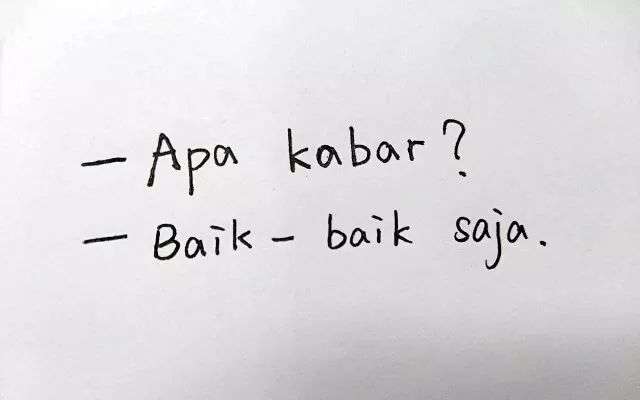 — Apa kabar?
— Baik - baik saja.